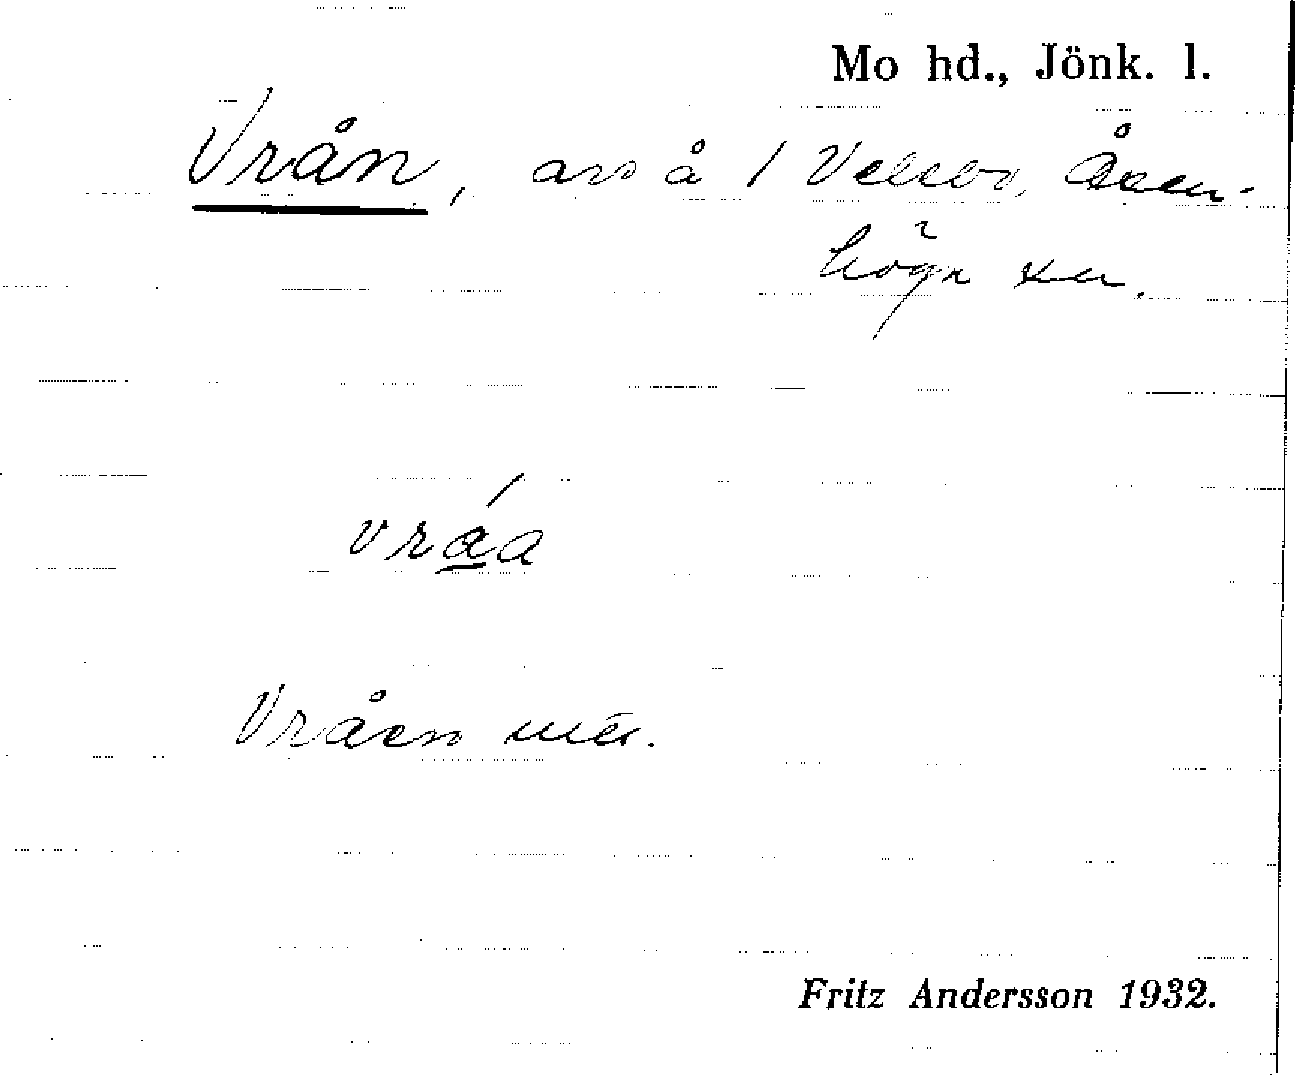 Mo hd., Jönk. l.
Vrån, avs å 1 Velebo, Åsen-
höga sn.
vråa
Vråen mtr.
Fritz Andersson 1932.